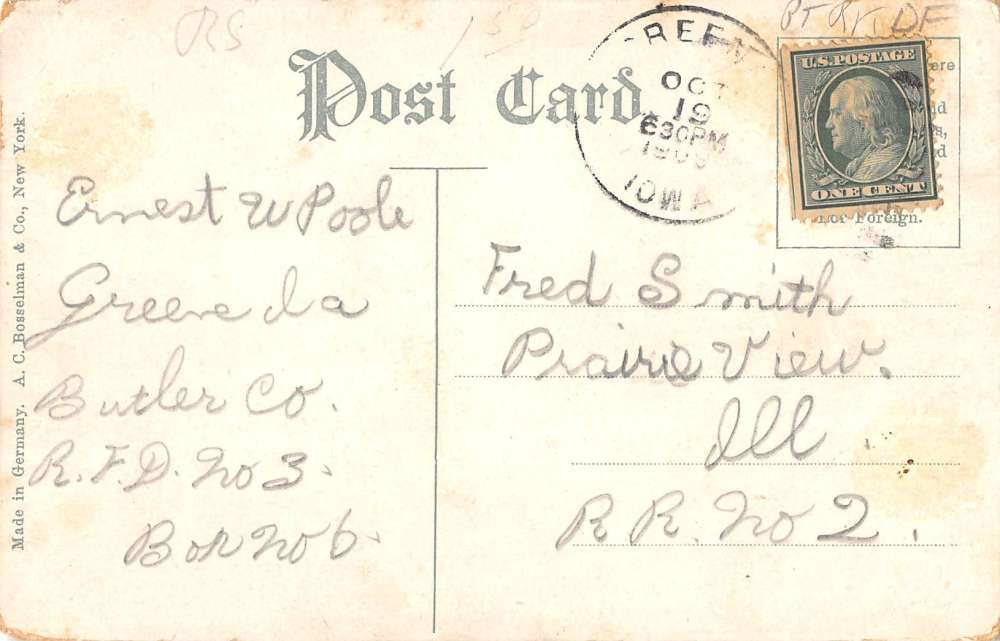 RS
PT RT DF
Post Card.
GREENE
OCT
19
630PM
IOWA
U.S. POSTAGE
ONE CENT
For Foreign.
Made in Germany. A. C. Bosselman & Co., New York.
Ernest W Poole
Greene Ia
Butler Co.
R. F. D. No 3.
Box No 6.
Fred Smith
Prairie View.
Ill
R R. No 2.